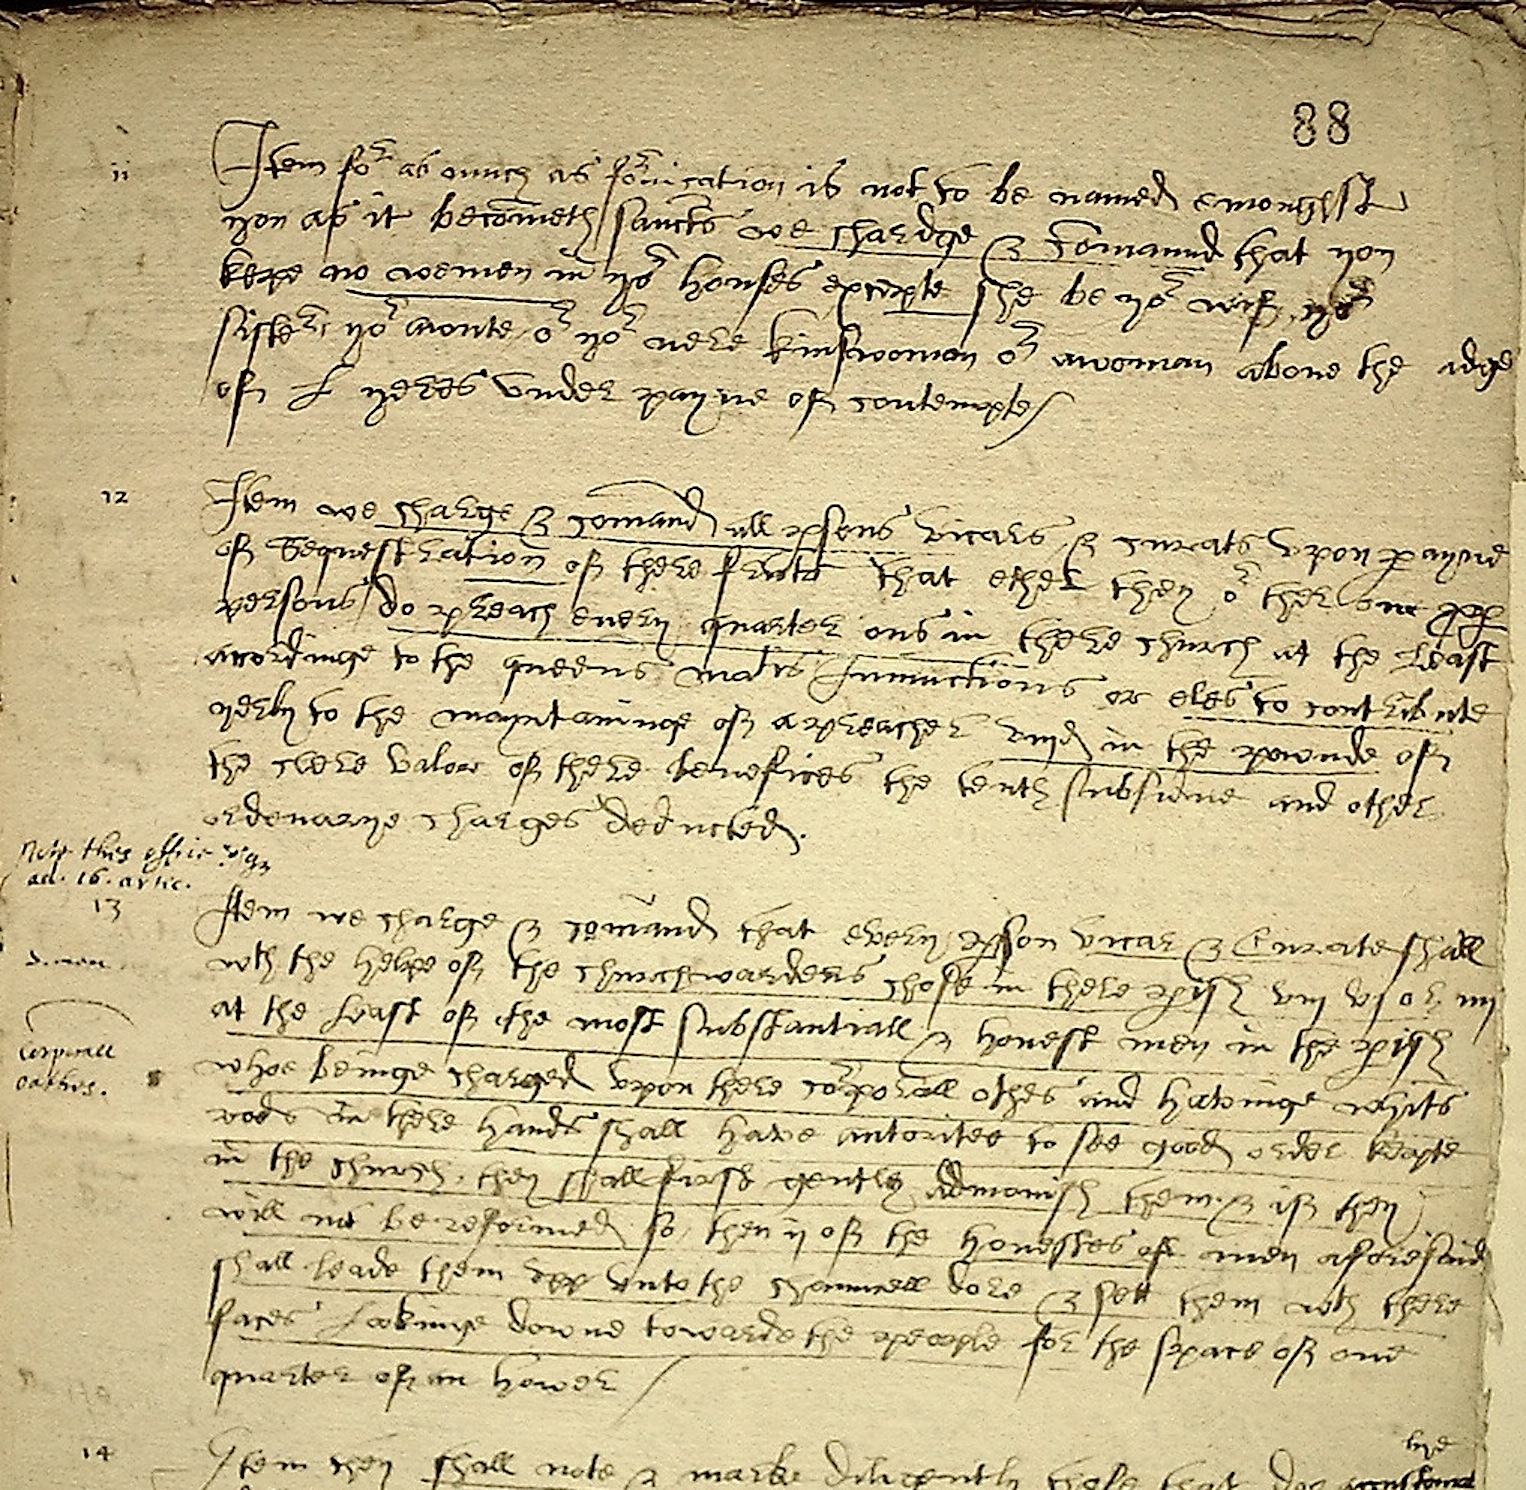 88
ii
Item for as much as fornication is not to be named emonghst
you as it becometh sancts we chardge & comaund that you
kepe no wemen in yor houses excepte she be yor wif, yor
sister, yor aonte, or yor nere kinswoman or awoman above the adge
off L yeres under payne off contempte
12
Item we charge & comand all psons vicars, & curats upon payne
off Sequestration off there fruts that ether they or ther one pp
persons do preach every quarter ons in there church at the Least
acordinge to the queens maties Iniunctions or eles to contribute
yerly to the mayntaininge off apreacher viijd in the pownde off
the clere valow off there benefices the tenth subsidue and other
ordenarye charges deducted.
Note this office
ad. 16. artic.
13
Item we charge & comand that every pson vicar & Curate shall
wth the helpe off the churchwardens chose in there pish viij vj or iiij
at the Least off the most substantiall & honest men in the pish
corporall
oathes.
whoe beinge charged upon there corporall othes and havinge whits
rods in there hands shall have autoritee to see good order kepte
in the church, they shall first gently admonish them & iff they
will not be reformed so, then ij off the honestes off men aforesaid
shall leade them upp unto the chauncell dore & sett them wth there
faces Lookinge downe towards the people for the space off one
quarter off an hower
14
Item they shall note & marke diligently those that doe